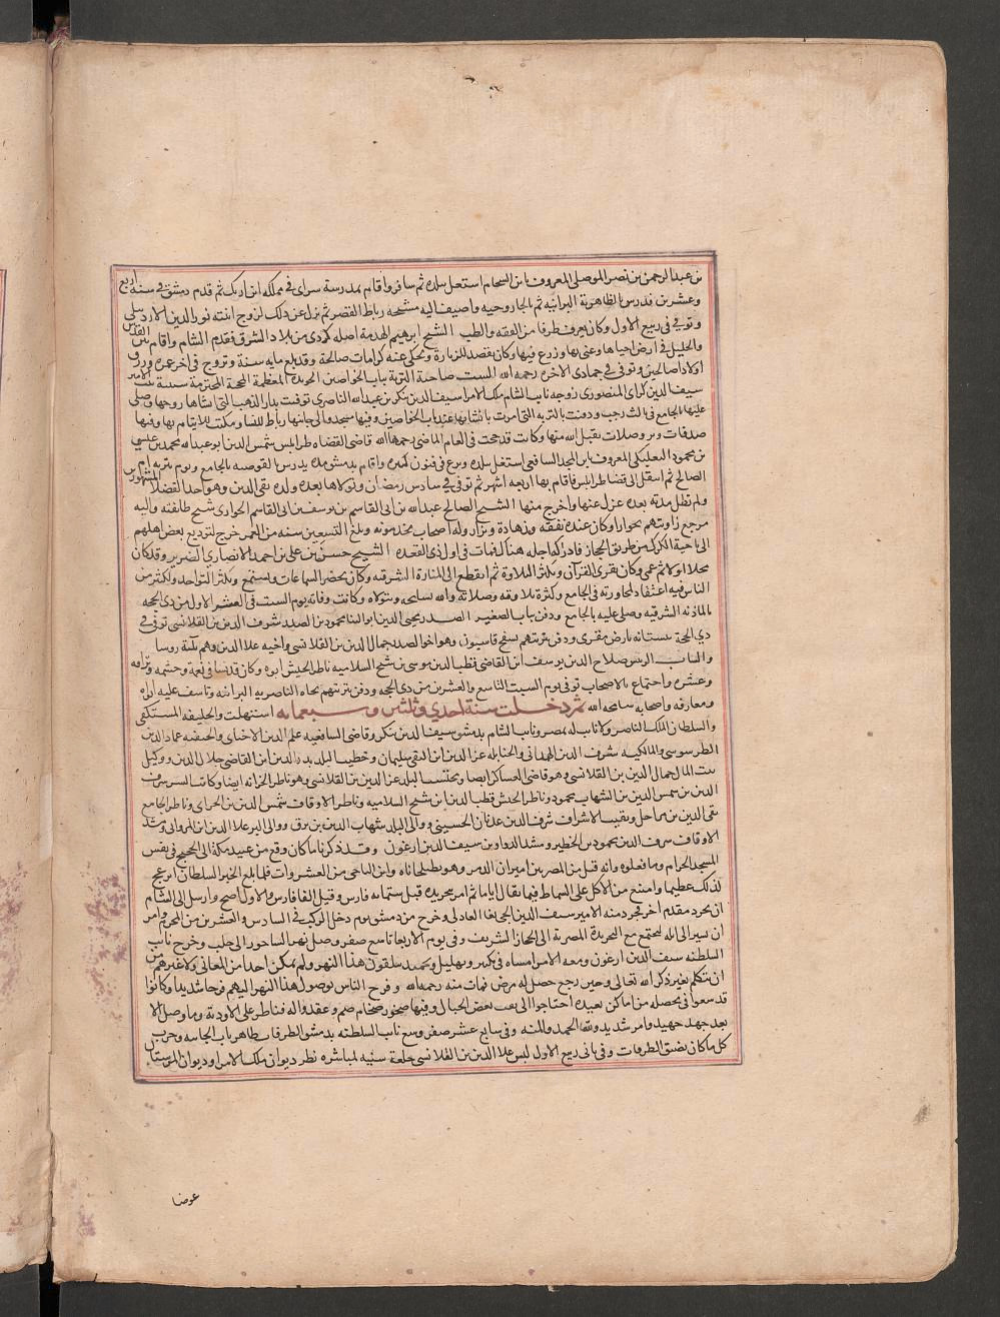 بن عبد الرحمن بن نصر الموصلي المعروف بابن السحام اشتغل ببلده ثم سافر واقام بمدرسة سراى في مملكة ازبك ثم قدم دمشق في سنة اربع
وعشرين فدرس بالظاهرية البرانية ثم بالجاروخيه واضيف اليه مشيخة رباط القصر ثم نزل عن ذلك لزوج ابنته نور الدين الاردبيلي
وتوفي في ربيع الاول وكان يعرف طرفا من الفقه والطب الشيخ ابرهيم الهدمة اصله كردي من بلاد الشرق فقدم الشام واقام بين القدس
والخليل في ارض احياها وعني بها وزرع فيها وكان يقصد للزيارة ويحكى عنه كرامات صالحة وقد بلغ مايه سنة وتزوج في اخر عمره ورزق
اولادا صالحين وتوفي في جمادى الاخره رحمه الله الست صاحبة التربة بباب الخواصين الخونده المعظمة المحجبة المحترمة ستيتة بنت الامير
سيف الدين كراي المنصوري زوجه نايب الشام ملك الامرا سيف الدين تنكز بن عبد الله الناصري توفيت بدار الذهب التي انشاها زوجها وصلي
عليها بالجامع في ثالث رجب ودفنت بالتربه التي امرت بانشايها عند باب الخواصين وفيها مسجد والى جانبها رباط للنسا ومكتب للايتام بها وفيها
صدقات وبر وصلات تقبل الله منها وكانت قد حجت في العام الماضي رحمها الله قاضي القضاه طرابلس شمس الدين ابو عبد الله محمد بن عيسى
بن محمود البعلبكي المعروف بابن المجد الشافعي اشتغل ببلده وبرع في فنون كثيره واقام بدمشق مده يدرس بالقوصيه بالجامع ويوم بتربه ام
الصالح ثم انتقل الى قضا طرابلس فاقام بها اربعه اشهر ثم توفي في سادس رمضان وتولاها بعده ولده تقي الدين وهو احد الفضلا المشهورين
ولم تطل مدته بعده عزل عنها واخرج منها الشيخ الصالح عبد الله بن ابى القاسم بن يوسف بن ابى القاسم الحواري شيخ طائفته واليه
مرجع زاويتهم بحوارا وكان عنده تفقه وزهادة ويزار وله اصحاب يخدمونه وبلغ التسعين سنه من العمر خرج لتوديع بعض اهلهم
الى ناحية الكرك من طريق الحجاز فادركه اجله هناك فمات في اول ذي القعده الشيخ حسن بن علي بن احمد الانصاري الضرير وقد كان
بصيرا اولا ثم عمي وكان يقرى القرآن ويكثر التلاوة ثم انقطع الى المنارة الشرقيه وكان يحضر السماعات ويستمع ويكثر التواجد ولكثير من
الناس فيه اعتقاد لمجاورته في الجامع وكثرة تلاوته وصلاته والله يسامحه وكانت وفاته يوم السبت في العشر الاول من ذي الحجه
بالماذنه الشرقيه وصلي عليه بالجامع ودفن بباب الصغير الصدر محيي الدين ابو الثنا محمود بن الصدر شرف الدين بن القلانسي توفي في
ذي الحجة ببستانه بارض مقرى ودفن بتربتهم بسفح قاسيون وهو اخو الصدر جمال الدين بن القلانسي واخيه علا الدين وهم ثلثة روسا
والشاب الرييس صلاح الدين يوسف ابن القاضي قطب الدين موسى بن شيخ السلاميه ناظر الجيش ابوه وكان قد نشا في نعمة وحشمه وترافه
وعشره واجتماع بالاصحاب توفي يوم السبت التاسع والعشرين من ذي الحجه ودفن بتربتهم تجاه الناصريه البرانيه وتاسف عليه ابواه
ومعارفه واصحابه سامحه الله ثم دخلت سنة احدى وثلثين وسبعمايه استهلت والخليفه المستكفي
والسلطان الملك الناصر ولا نايب له بمصر ونايب الشام بدمشق سيف الدين تنكز وقاضي الشافعيه علم الدين الاخناي والحنفيه عماد الدين
الطرسوسي والمالكيه شرف الدين الهمداني والحنابله عز الدين ابن التقي سليمان وخطيب البلد بدر الدين ابن القاضي جلال الدين ووكيل
بيت المال جمال الدين بن القلانسي وهو قاضي العساكر ايضا ومحتسب البلد عز الدين بن القلانسي وهو ناظر الخزانه ايضا وكاتب السر شرف
الدين بن شمس الدين بن الشهاب محمود وناظر الجيش قطب الدين ابن شيخ السلاميه وناظر الاوقاف شمس الدين بن الحراى وناظر الجامع
تقي الدين بن مراجل ونقيب الاشراف شرف الدين عدنان الحسيني ووالى البلد شهاب الدين بن برق ووالى البر علا الدين ابن المرواني ومشد
الاوقاف شرف الدين محمود بن الخطير ومشد الدواوين سيف الدين ارغون وقد ذكرنا ما كان وقع من عبيد مكة الى الحجيج في نفس
المسجد الحرام وما فعلوه وانه قتل من المصريين اميران الدمر وهو طبلخاناه وابن التاجي من العشروات فلما بلغ الخبر السلطان انزعج
لذلك عظيما وامتنع من الاكل على السماط فيما يقال اياما ثم امر بتجريده قيل ستمايه فارس وقيل الفا فارس والاول اصح وارسل الى الشام
ان يجرد مقدم اخر فجرد منه الامير سيف الدين الجي بغا العادلي وخرج من دمشق يوم دخل الركب في السادس والعشرين من المحرم وامر
ان يسير الى ايله ليجتمع مع التجريدة المصرية الى الحجاز الشريف وفي يوم الاربعا تاسع صفر وصل نهر الساجور الى حلب وخرج نايب
السلطنه سيف الدين ارغون ومعه الامرا مشاه في تكبير وتهليل وتحميد يتلقون هذا النهر ولم يمكن احدا من المغاني ولا غيرهم من
ان يتكلم بغير ذكر الله تعالى وحين رجع حصل له مرض فمات منه رحمه الله وفرح الناس بوصول هذا النهر اليهم فرحا شديدا وكانوا
قد سعوا في تحصيله من اماكن بعيده احتاجوا الى نقب بعض الجبال وفيها صخور ضخام صم وعقدوا له قناطر على الاودية وما وصل الا
بعد جهد جهيد وامر شديد ولله الحمد والمنه وفي سابع عشر صفر وسع نايب السلطنه بدمشق الطرقات ظاهر باب الجابيه وخرب
كل ما كان يضيق الطرقات وفي ثاني ربيع الاول لبس علا الدين بن القلانسي خلعة سنيه لمباشره نظر ديوان ملك الامرا وديوان المرستان
عوضا